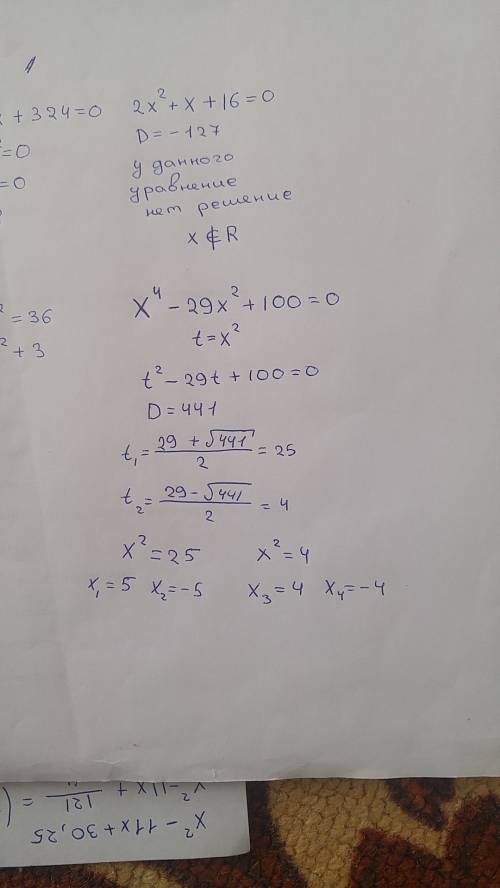 1
x + 324 = 0
² = 0
= 0
² = 36
² + 3
2x² + x + 16 = 0
D = -127
у данного
уравнение
нет решение
x ∉ R
x⁴ - 29x² + 100 = 0
t = x²
t² - 29t + 100 = 0
D = 441
t₁ = (29 + √441)/2 = 25
t₂ = (29 - √441)/2 = 4
x² = 25 x² = 4
x₁ = 5 x₂ = -5 x₃ = 4 x₄ = -4
x² - 11x + 30,25
x² - 11x + 121 = (